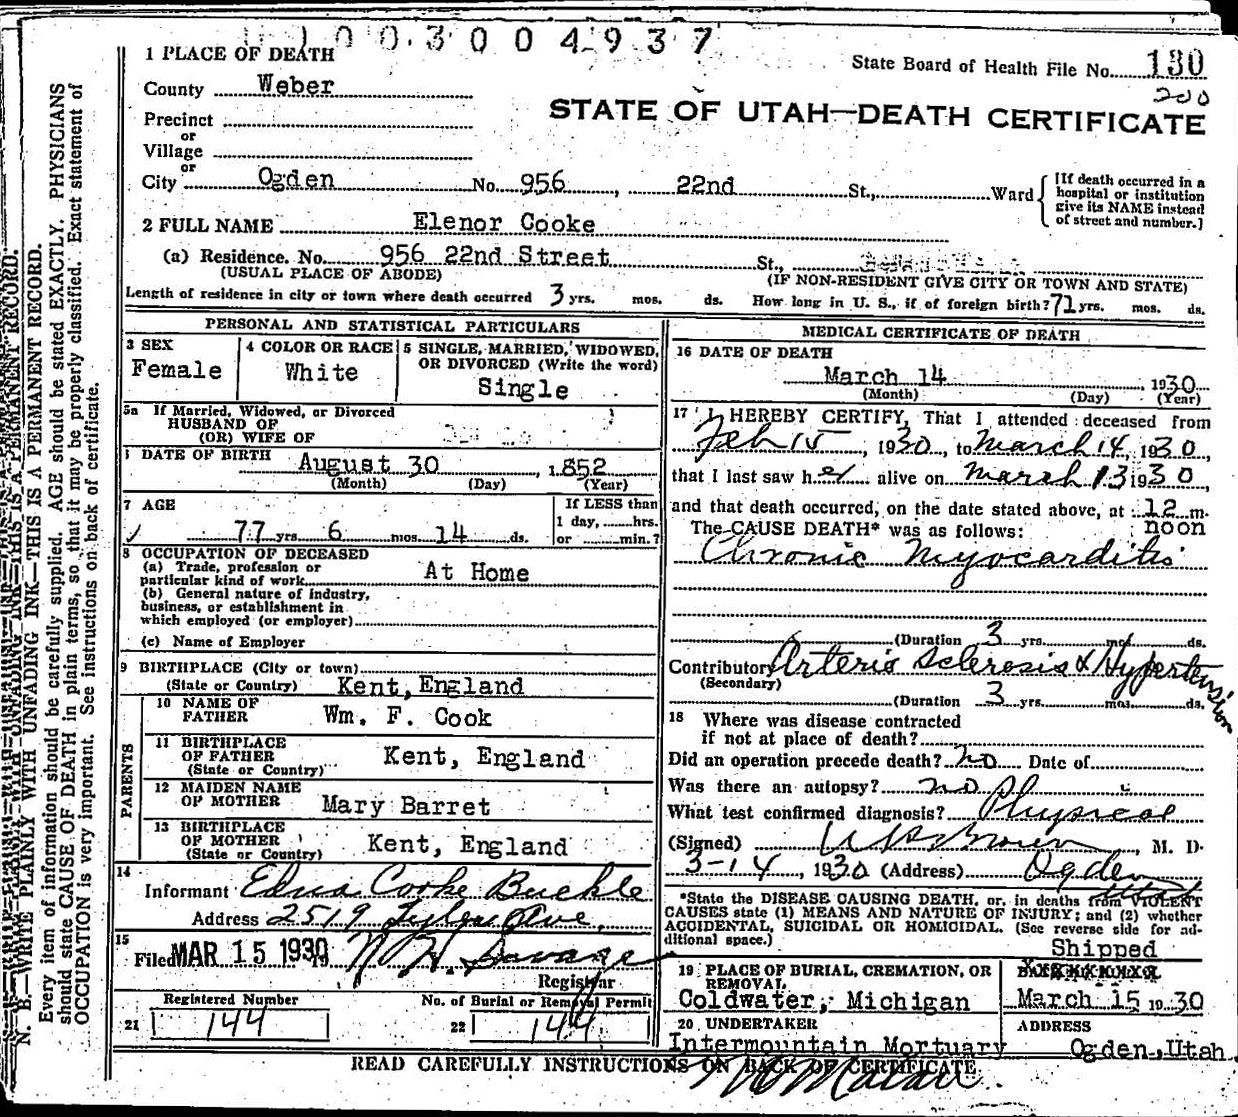 1003004937
1 PLACE OF DEATH
State Board of Health File No. 130
200
County Weber
STATE OF UTAH—DEATH CERTIFICATE
Precinct
or
Village
or
City Ogden No. 956, 22nd St., Ward
[If death occurred in a hospital or institution give its NAME instead of street and number.]
2 FULL NAME Elenor Cooke
(a) Residence. No. 956 22nd Street St.,
(USUAL PLACE OF ABODE) (IF NON-RESIDENT GIVE CITY OR TOWN AND STATE)
Length of residence in city or town where death occurred 3 yrs. mos. ds. How long in U. S., if of foreign birth? 71 yrs. mos. ds.
PERSONAL AND STATISTICAL PARTICULARS
3 SEX Female
4 COLOR OR RACE White
5 SINGLE, MARRIED, WIDOWED, OR DIVORCED (Write the word) Single
5a If Married, Widowed, or Divorced
HUSBAND OF
(OR) WIFE OF
DATE OF BIRTH August 30, 1852
(Month) (Day) (Year)
7 AGE 77 yrs. 6 mos. 14 ds.
If LESS than 1 day, ......hrs. or ......min.?
8 OCCUPATION OF DECEASED
(a) Trade, profession or particular kind of work At Home
(b) General nature of industry, business, or establishment in which employed (or employer)
(c) Name of Employer
9 BIRTHPLACE (City or town)
(State or Country) Kent, England
PARENTS
10 NAME OF FATHER Wm. F. Cook
11 BIRTHPLACE OF FATHER (State or Country) Kent, England
12 MAIDEN NAME OF MOTHER Mary Barret
13 BIRTHPLACE OF MOTHER (State or Country) Kent, England
14
Informant Edna Cooke Buckle
Address 2519 Tyler Ave,
15 Filed MAR 15 1930 Savage
Registrar
Registered Number
21 144
No. of Burial or Removal Permit
22 144
MEDICAL CERTIFICATE OF DEATH
16 DATE OF DEATH
March 14, 1930
(Month) (Day) (Year)
17 I HEREBY CERTIFY, That I attended deceased from
Feb 15, 1930, to March 14, 1930,
that I last saw her alive on March 13 1930,
and that death occurred, on the date stated above, at 12 m.
noon
The CAUSE DEATH* was as follows:
Chronic Myocarditis
(Duration 3 yrs. mos. ds.
Contributory Arterio Sclerosis & Hypertension
(Secondary)
(Duration 3 yrs. mos. ds.
18 Where was disease contracted
if not at place of death?
Did an operation precede death? no Date of
Was there an autopsy? no
What test confirmed diagnosis? Physical
(Signed) M. D.
3-14, 1930 (Address) Ogden Utah
*State the DISEASE CAUSING DEATH, or, in deaths from VIOLENT
CAUSES state (1) MEANS AND NATURE OF INJURY; and (2) whether
ACCIDENTAL, SUICIDAL OR HOMICIDAL. (See reverse side for ad-
ditional space.)
Shipped
19 PLACE OF BURIAL, CREMATION, OR REMOVAL
Coldwater, Michigan March 15 1930
20 UNDERTAKER ADDRESS
Intermountain Mortuary Ogden, Utah
READ CAREFULLY INSTRUCTIONS ON BACK OF CERTIFICATE
N. B.—WRITE PLAINLY WITH UNFADING INK—THIS IS A PERMANENT RECORD.
Every item of information should be carefully supplied. AGE should be stated EXACTLY. PHYSICIANS
should state CAUSE OF DEATH in plain terms, so that it may be properly classified. Exact statement of
OCCUPATION is very important. See instructions on back of certificate.